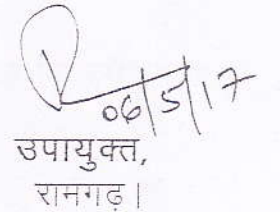 06/5/17
उपायुक्त,
रामगढ़।